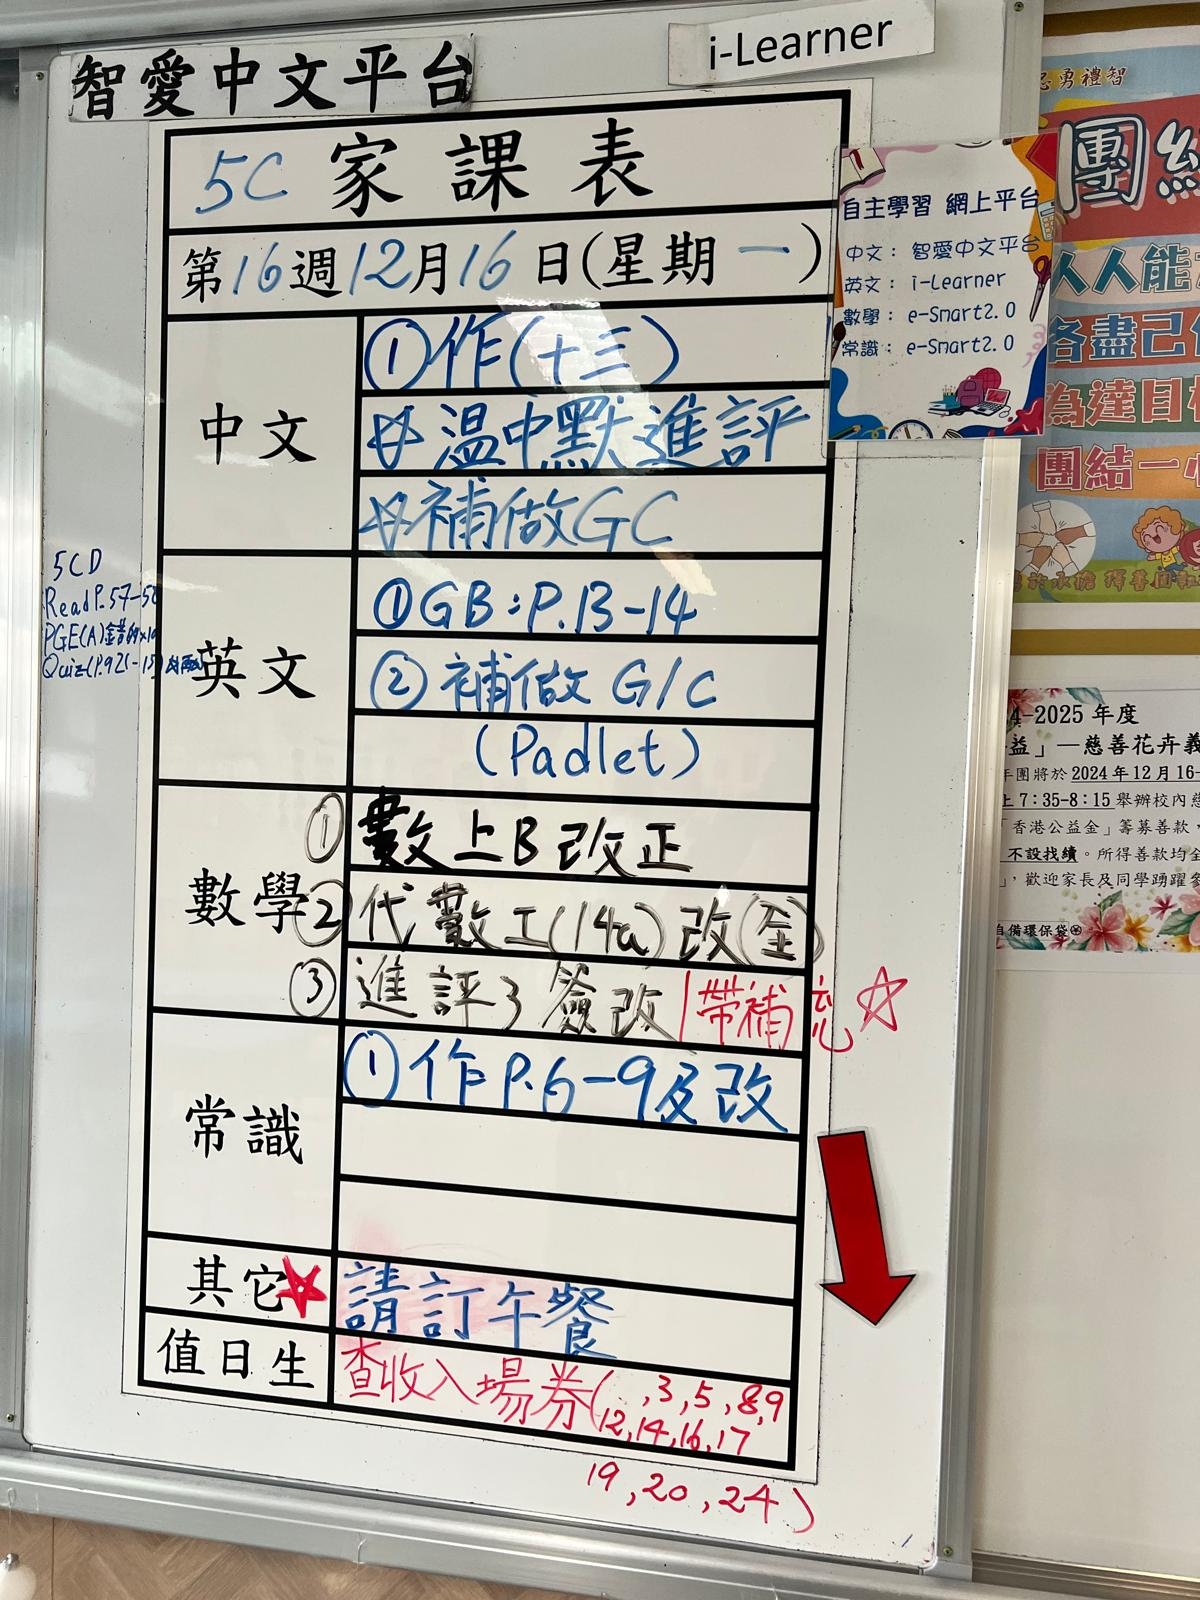 智愛中文平台
i-Learner
5C 家課表
第16週12月16日(星期一)
中文
①作(十三)
☆溫中默進評
☆補做GC
英文
①GB:P.13-14
②補做 G/C
(Padlet)
5CD
Read P.57-5
PGE(A)
Quiz(P.9
數學
①數上B改正
②代數工(14a)改(全)
③進評3簽改/帶補充☆
常識
①作P.6-9及改
其它
請訂午餐
值日生
查收入場券(
,3,5,8,9
12,14,16,17
19,20,24)
自主學習 網上平台
中文: 智愛中文平台
英文: i-Learner
數學: e-Smart2.0
常識: e-Smart2.0
勇禮智
團結
人人能
各盡己
為達目
團結一
-2025 年度
益」—慈善花卉義
年團將於 2024 年 12 月 16-
上 7:35-8:15 舉辦校內慈
「香港公益金」籌募善款,
不設找續。所得善款均全
」,歡迎家長及同學踴躍參
自備環保袋